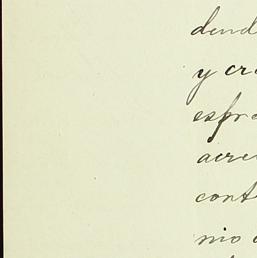 dend
y cr
espr
acre
cont
nio